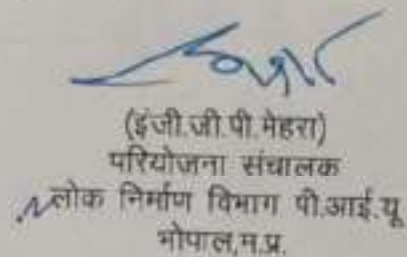 (इंजी.जी.पी.मेहरा)
परियोजना संचालक
लोक निर्माण विभाग पी.आई.यू
भोपाल,म.प्र.